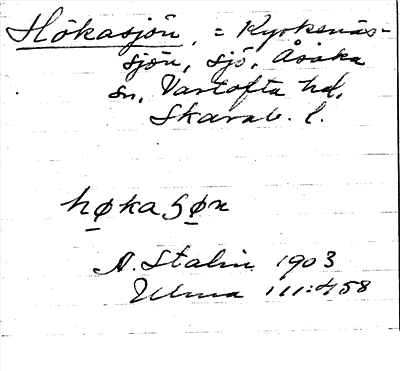 Hökasjön, = Kyrkenäs-
sjön, sjö, Åsaka
sn, Vartofta hd,
Skarab. l.
høka søn
A. Stalin 1903
Ulma 111:458